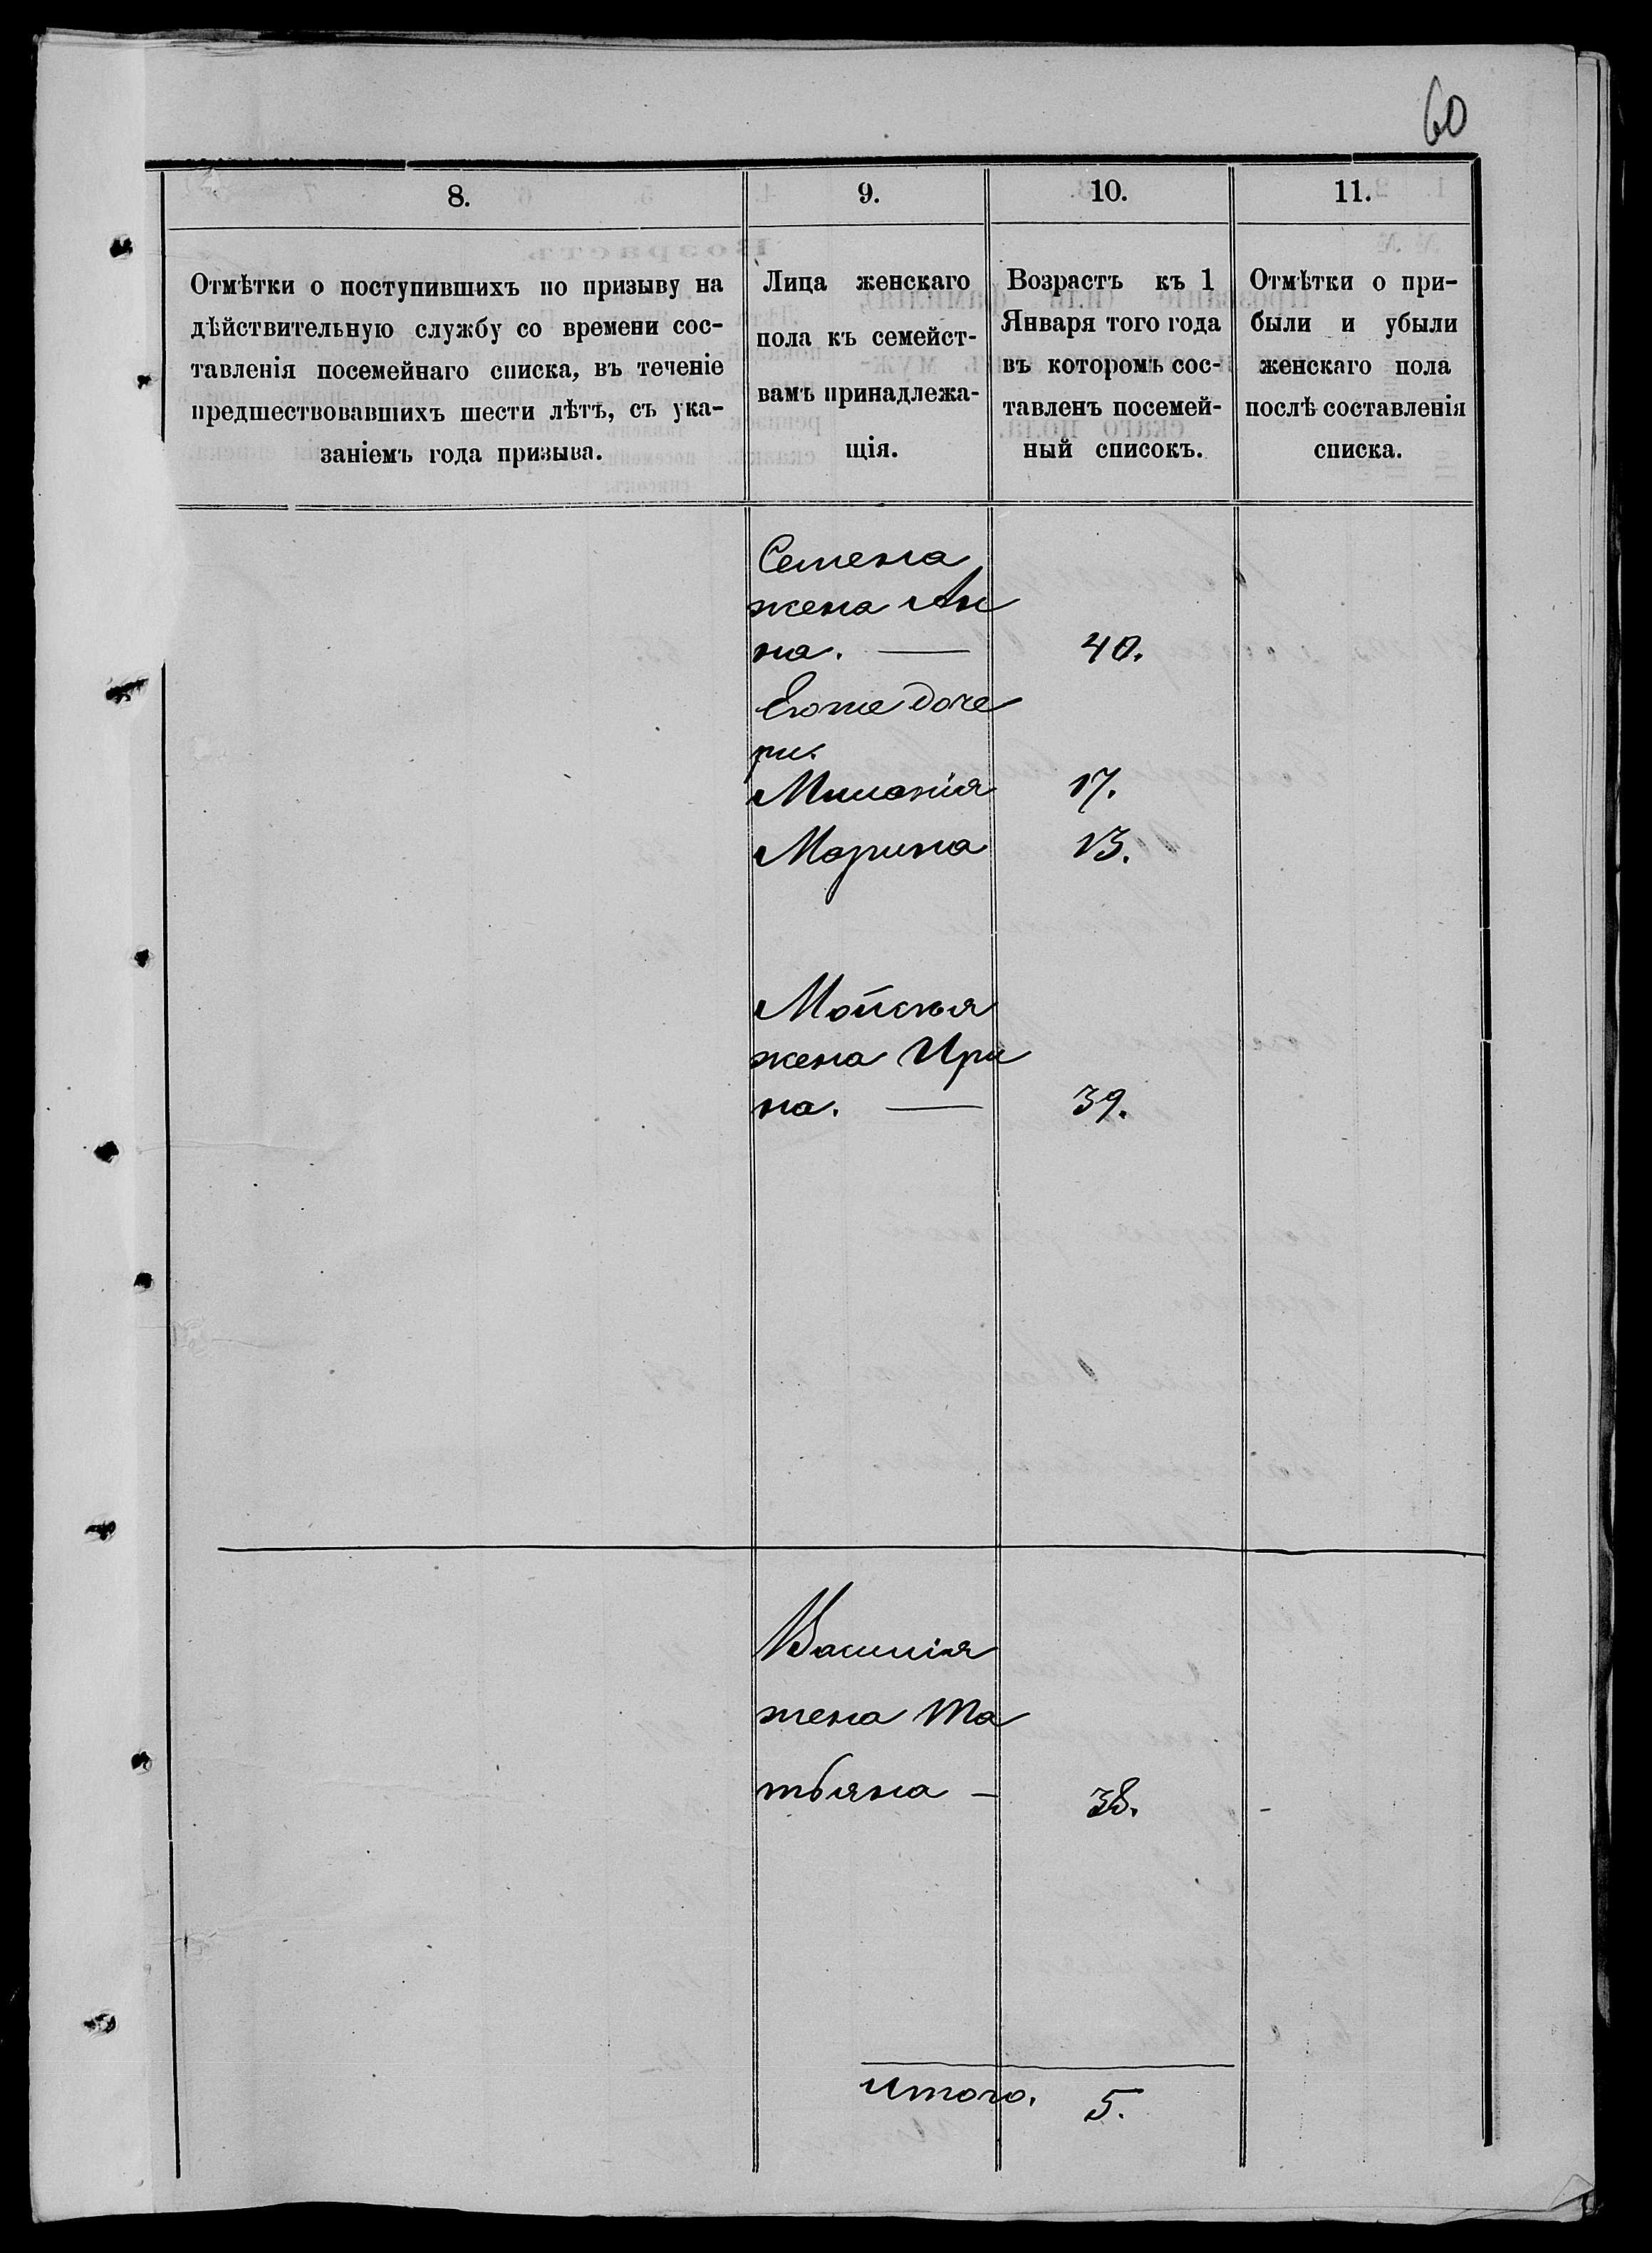 60
8.
9.
10.
11.
Отмѣтки о поступившихъ по призыву на
дѣйствительную службу со времени сос-
тавленія посемейнаго списка, въ теченіе
предшествовавшихъ шести лѣтъ, съ ука-
заніемъ года призыва.
Лица женскаго
пола къ семейст-
вамъ принадлежа-
щія.
Возрастъ къ 1
Января того года
въ которомъ сос-
тавленъ посемей-
ный списокъ.
Отмѣтки о при-
были и убыли
женскаго пола
послѣ составленія
списка.
Семена
жена Ан
на. — 40.
Егоже доче
ри.
17.
Марина 13.
Мойсея
жена Ири
на. — 39.
Василія
жена Та
тьяна — 38. -
Итого. 5.